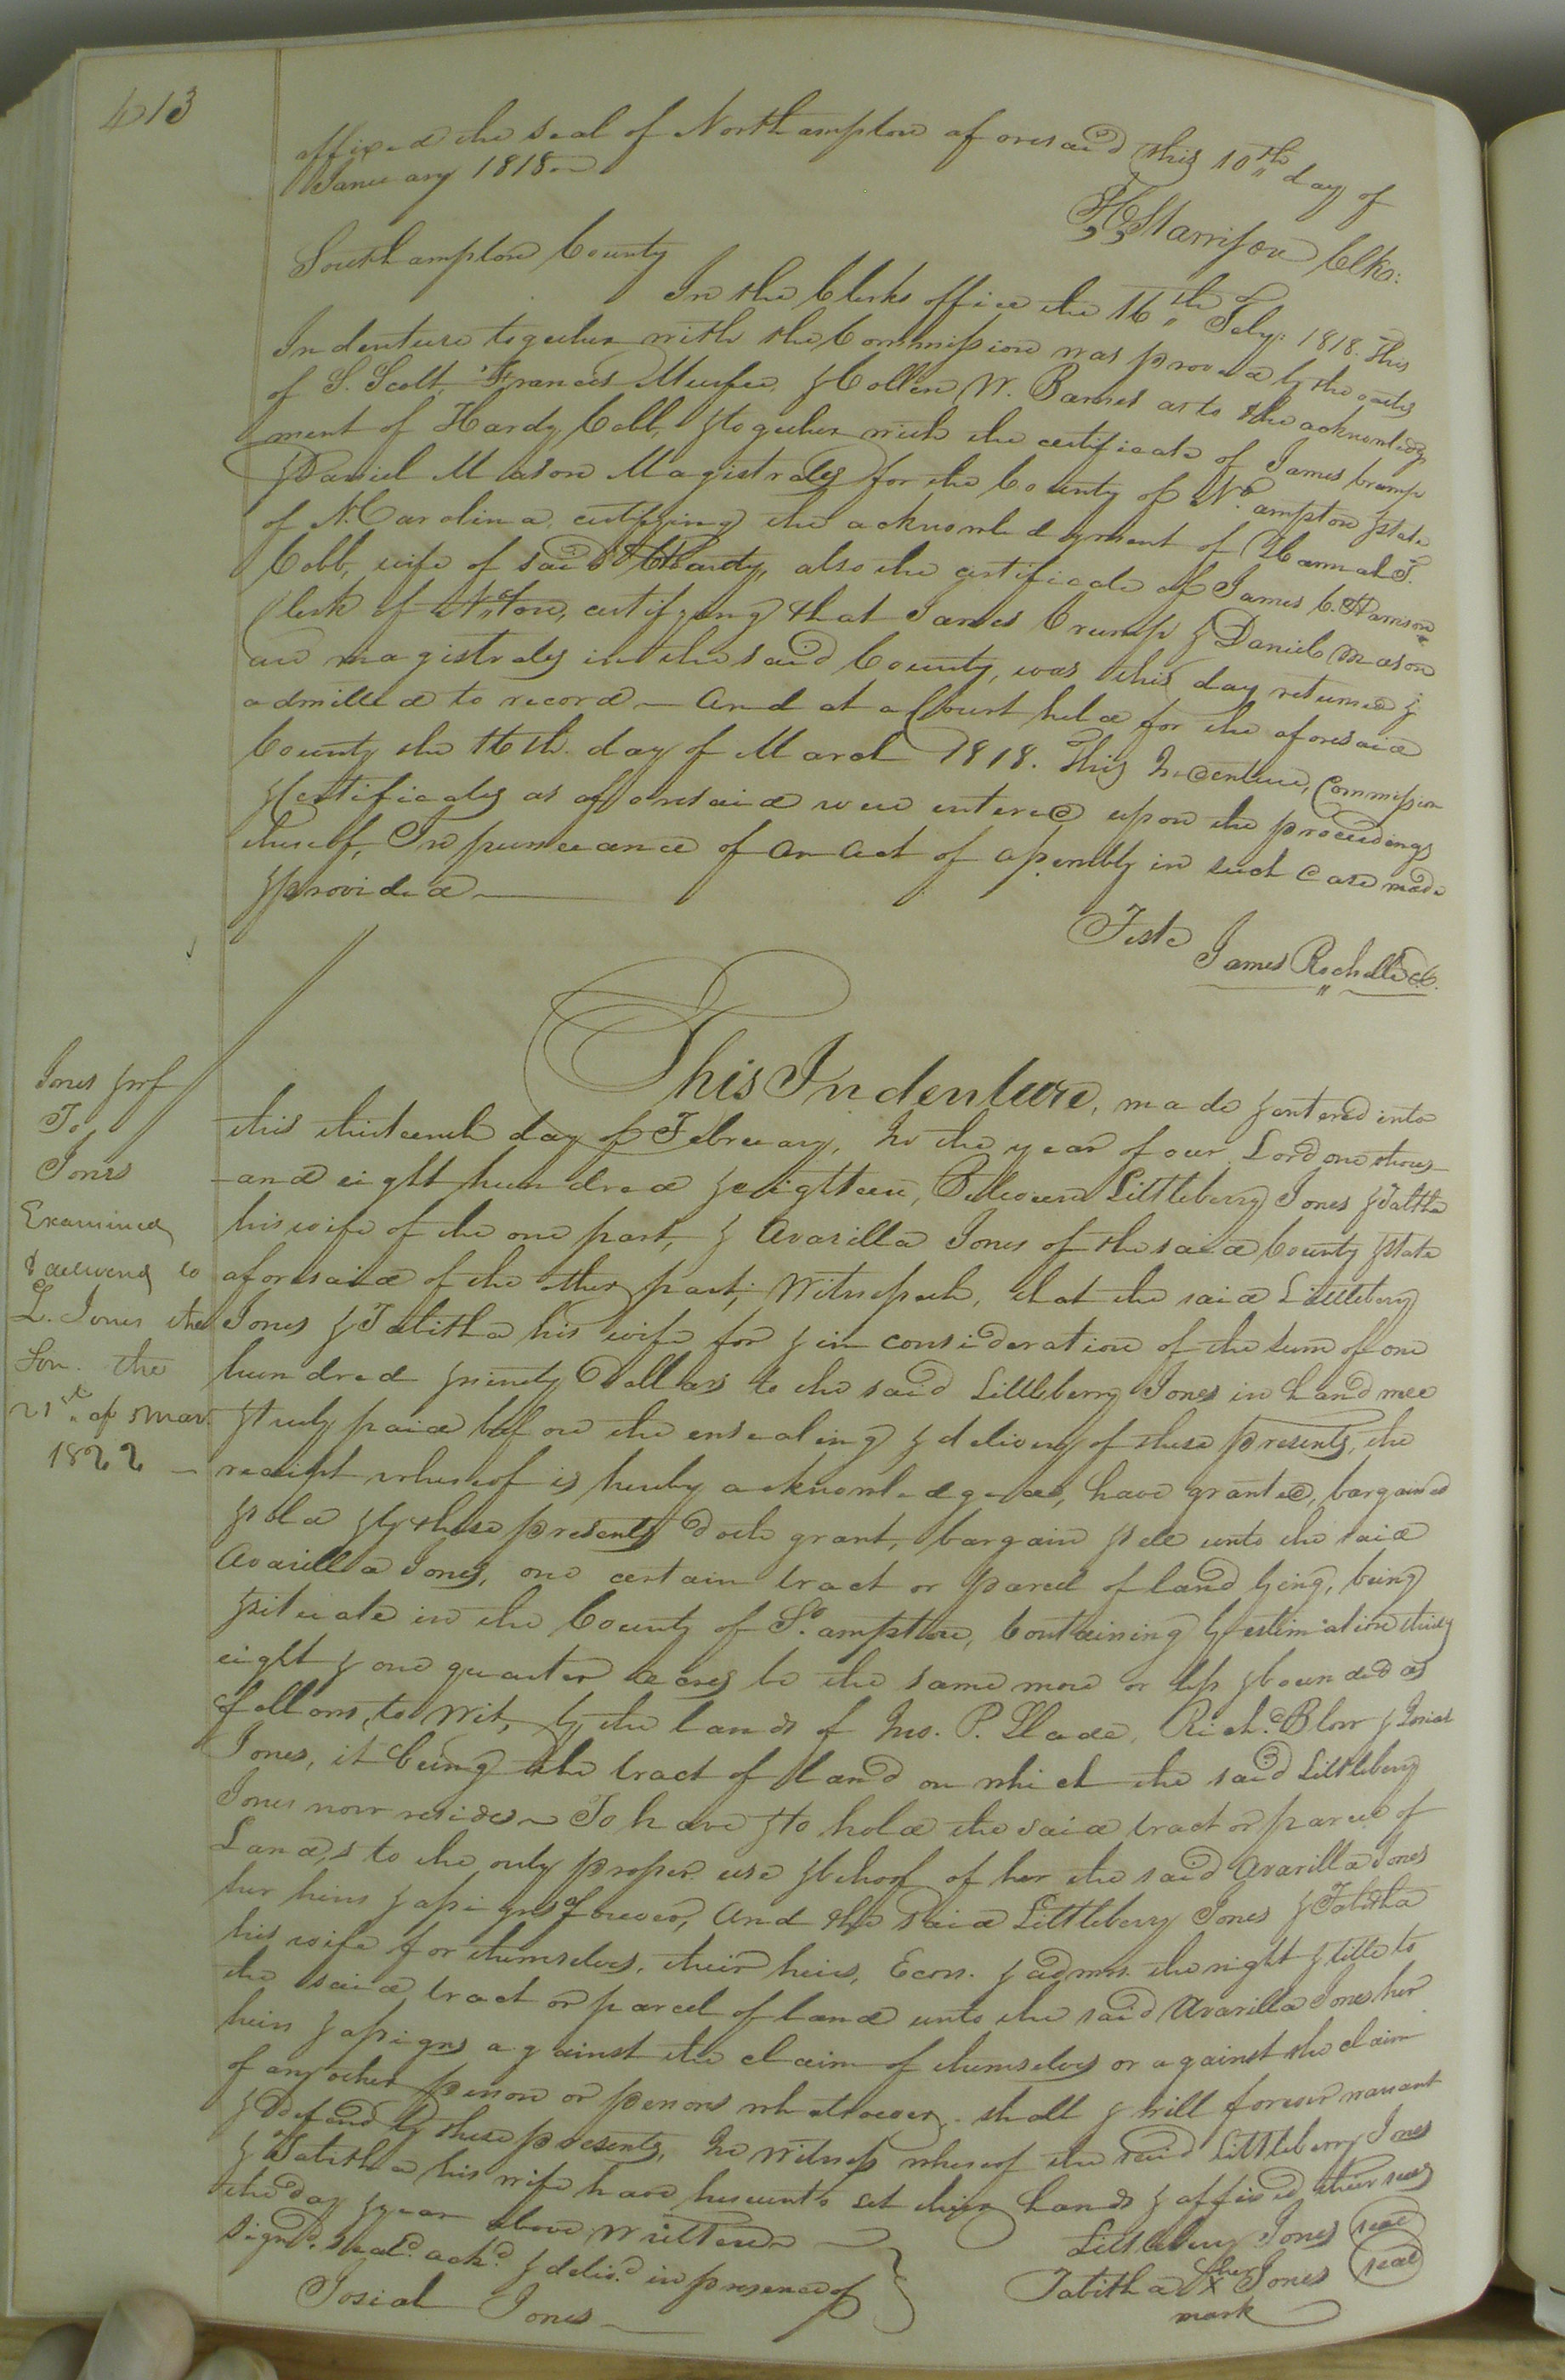 413
affixed the seal of Northampton aforesaid this 10th day of
January 1818
Harrison Clk:
Southampton County
In the Clerks office the 16th of Feby: 1818. This
Indenture together with the Commission was proved by the oaths
of S. Scott, Frances Murfee, & Collin W. Barnes as to the acknowledg
ment of Hardy Cobb, & together with the certificate of James Crump
& Daniel Mason Magistrates for the County of No.ampton & State
of N. Carolina, certifying the acknowledgment of Hannah T.
Cobb, wife of said Hardy, also the certificate of James C. Harrison
Clerk of N.ton, certifying that James Crump & Daniel Mason
are magistrates in the said County, was this day returned &
admitted to record — And at a Court held for the aforesaid
County the 16th. day of March 1818. This Indenture, Commission
& Certificates as aforesaid were entered upon the proceedings
thereof, In pursuance of an act of assembly in such case made
& provided
Teste
James Rochelle C.
Jones & wf
To
Jones
Examined
& delivered to
L. Jones the
Son the
21st of Mar.
1822
This Indenture, made & entered into
this thirteenth day of February, In the year of our Lord one thous-
-and eight hundred & eighteen, Between Littleberry Jones & Tabitha
his wife of the one part, & Avarilla Jones of the said County & State
aforesaid of the other part; Witnesseth, that the said Littleberry
Jones & Tabitha his wife for & in consideration of the sum of one
hundred & ninety Dollars to the said Littleberry Jones in hand well
& truly paid before the ensealing & delivery of these presents, the
receipt whereof is hereby acknowledged, have granted, bargained
& sold & by these presents doth grant, bargain & sell unto the said
Avarilla Jones, one certain tract or parcel of land lying, being
& situate in the County of So.ampton, Containing by estimation thirty
eight & one quarter acres be the same more or less & bounded as
follows, to Wit, by the lands of Jno. P. Slade, Richd. Blow & Josiah
Jones, it being the tract of land on which the said Littleberry
Jones now resides To have & to hold the said tract or parcel of
Land, s to the only proper use & behoof of her the said Avarilla Jones
her heirs & assigns forever, And the said Littleberry Jones & Tabitha
his wife for themselves, their heirs, Ecors. & admrs. the right & title to
the said tract or parcel of land unto the said Avarilla Jones her
heirs & assigns against the claim of themselves or against the claim
of any other person or persons whatsoever, shall & will forever warrant
& defend by these presents, In Witness whereof the said Littleberry Jones
& Tabitha his wife have hereunto set their hands & affixed their seals
the day & year above Written
Signd. Seald. ackd. & delivd. in presence of
Littleberry Jones (seal)
Tabitha her X Jones (seal)
mark
Josiah Jones